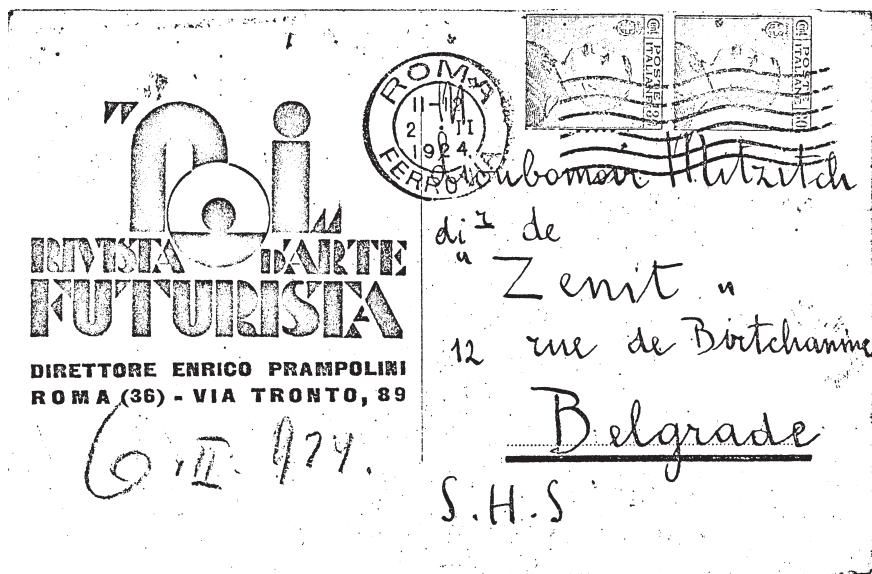 "Noi"
RIVISTA D'ARTE
FUTURISTA
DIRETTORE ENRICO PRAMPOLINI
ROMA (36) - VIA TRONTO, 89
6.II.924.
ROMA
11-12
2 II
1924
FERROVIA
POSTE ITALIANE
POSTE ITALIANE
Loubomir Mitzitch
di r de
"Zenit"
12 rue de Birtchanine
Belgrade
S.H.S